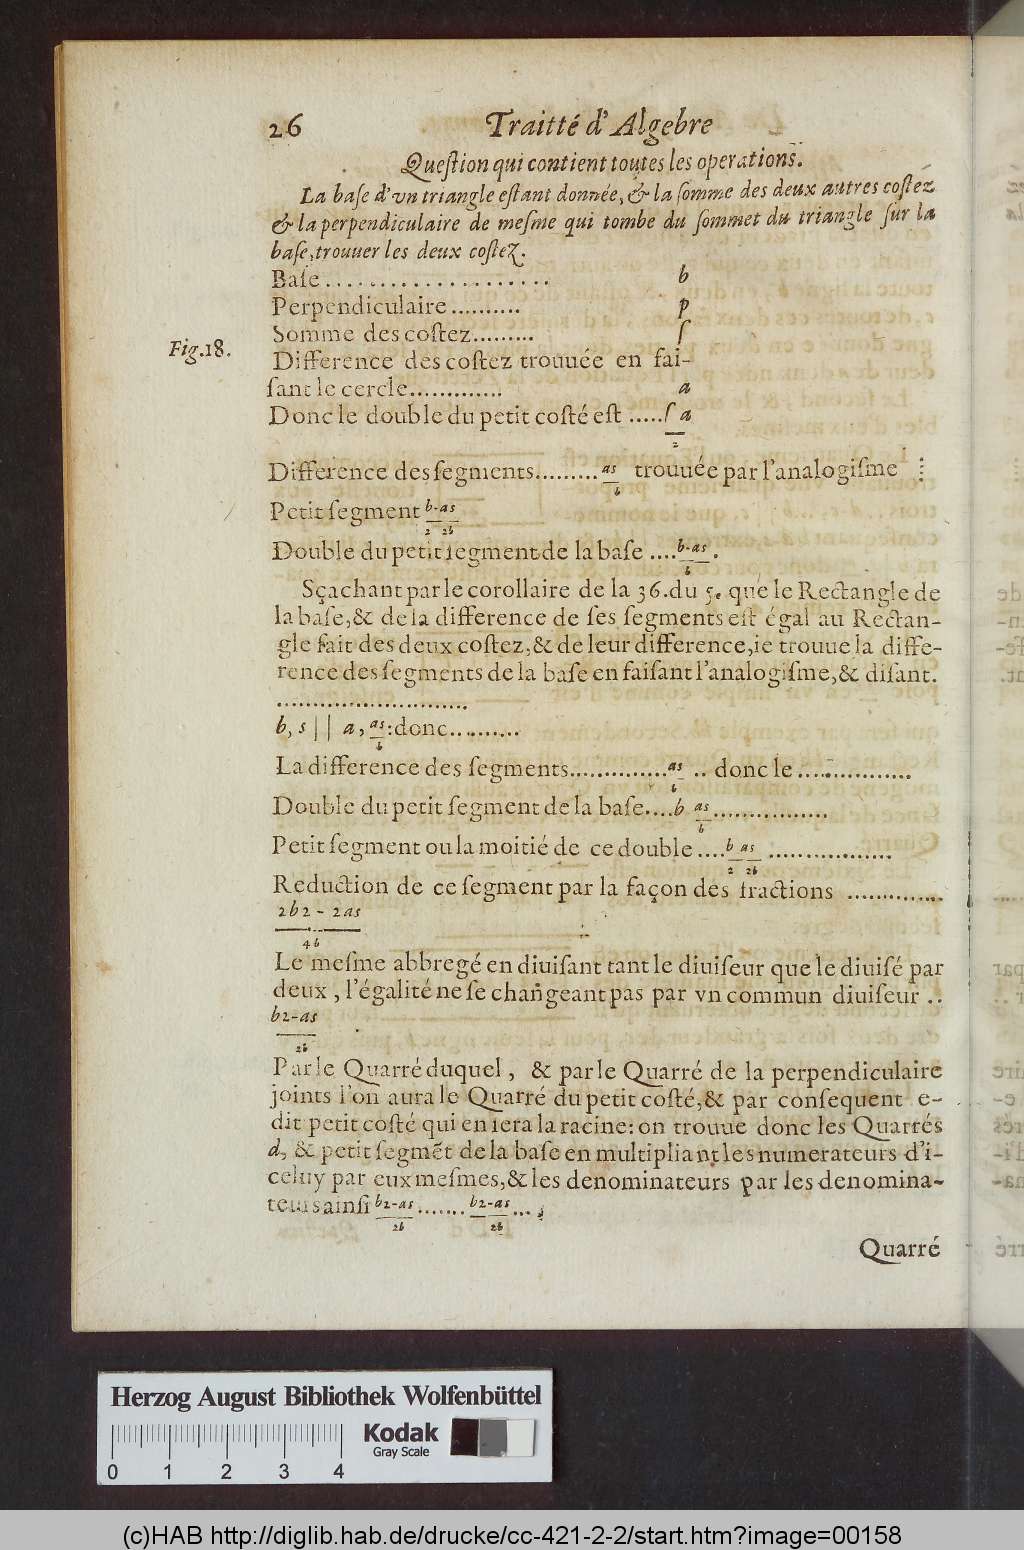 26 Traitté d'Algebre
Queſtion qui contient toutes les operations.
La baſe d'vn triangle eſtant donnée, & la ſomme des deux autres coſtez
& la perpendiculaire de meſme qui tombe du ſommet du triangle ſur la
baſe, trouuer les deux coſtez.
Baſe ..................... b
Perpendiculaire .......... p
Somme des coſtez......... ſ
Fig.18.
Difference des coſtez trouuée en fai-
ſant le cercle............. a
Donc le double du petit coſté eſt .....ſ a
2
Difference des ſegments......... as trouuée par l'analogiſme
b
Petit ſegment b-as
2 2b
Double du petit ſegment de la baſe ....b-as.
b
Sçachant par le corollaire de la 36. du 5. que le Rectangle de
la baſe, & de la difference de ſes ſegments eſt égal au Rectan-
gle fait des deux coſtez, & de leur difference, ie trouue la diffe-
rence des ſegments de la baſe en faiſant l'analogiſme, & diſant.
..........................
b, s || a, as: donc..........
b
La difference des ſegments..............as .. donc le ................
b
Double du petit ſegment de la baſe....b as................
b
Petit ſegment ou la moitié de ce double ....b as .................
2 2b
Reduction de ce ſegment par la façon des fractions ..............
2b2 - 2as
4b
Le meſme abbregé en diuiſant tant le diuiſeur que le diuiſé par
deux, l'égalité ne ſe changeant pas par vn commun diuiſeur ..
b2-as
2b
Par le Quarré duquel, & par le Quarré de la perpendiculaire
joints l'on aura le Quarré du petit coſté, & par conſequent e-
dit petit coſté qui en ſera la racine: on trouue donc les Quarrés
d, & petit ſegmẽt de la baſe en multipliant les numerateurs d'i-
celuy par eux meſmes, & les denominateurs par les denomina-
teurs ainſi b2-as ....... b2-as ... ;
2b 2b
Quarré
Herzog August Bibliothek Wolfenbüttel
Kodak
Gray Scale
0 1 2 3 4
(c)HAB http://diglib.hab.de/drucke/cc-421-2-2/start.htm?image=00158